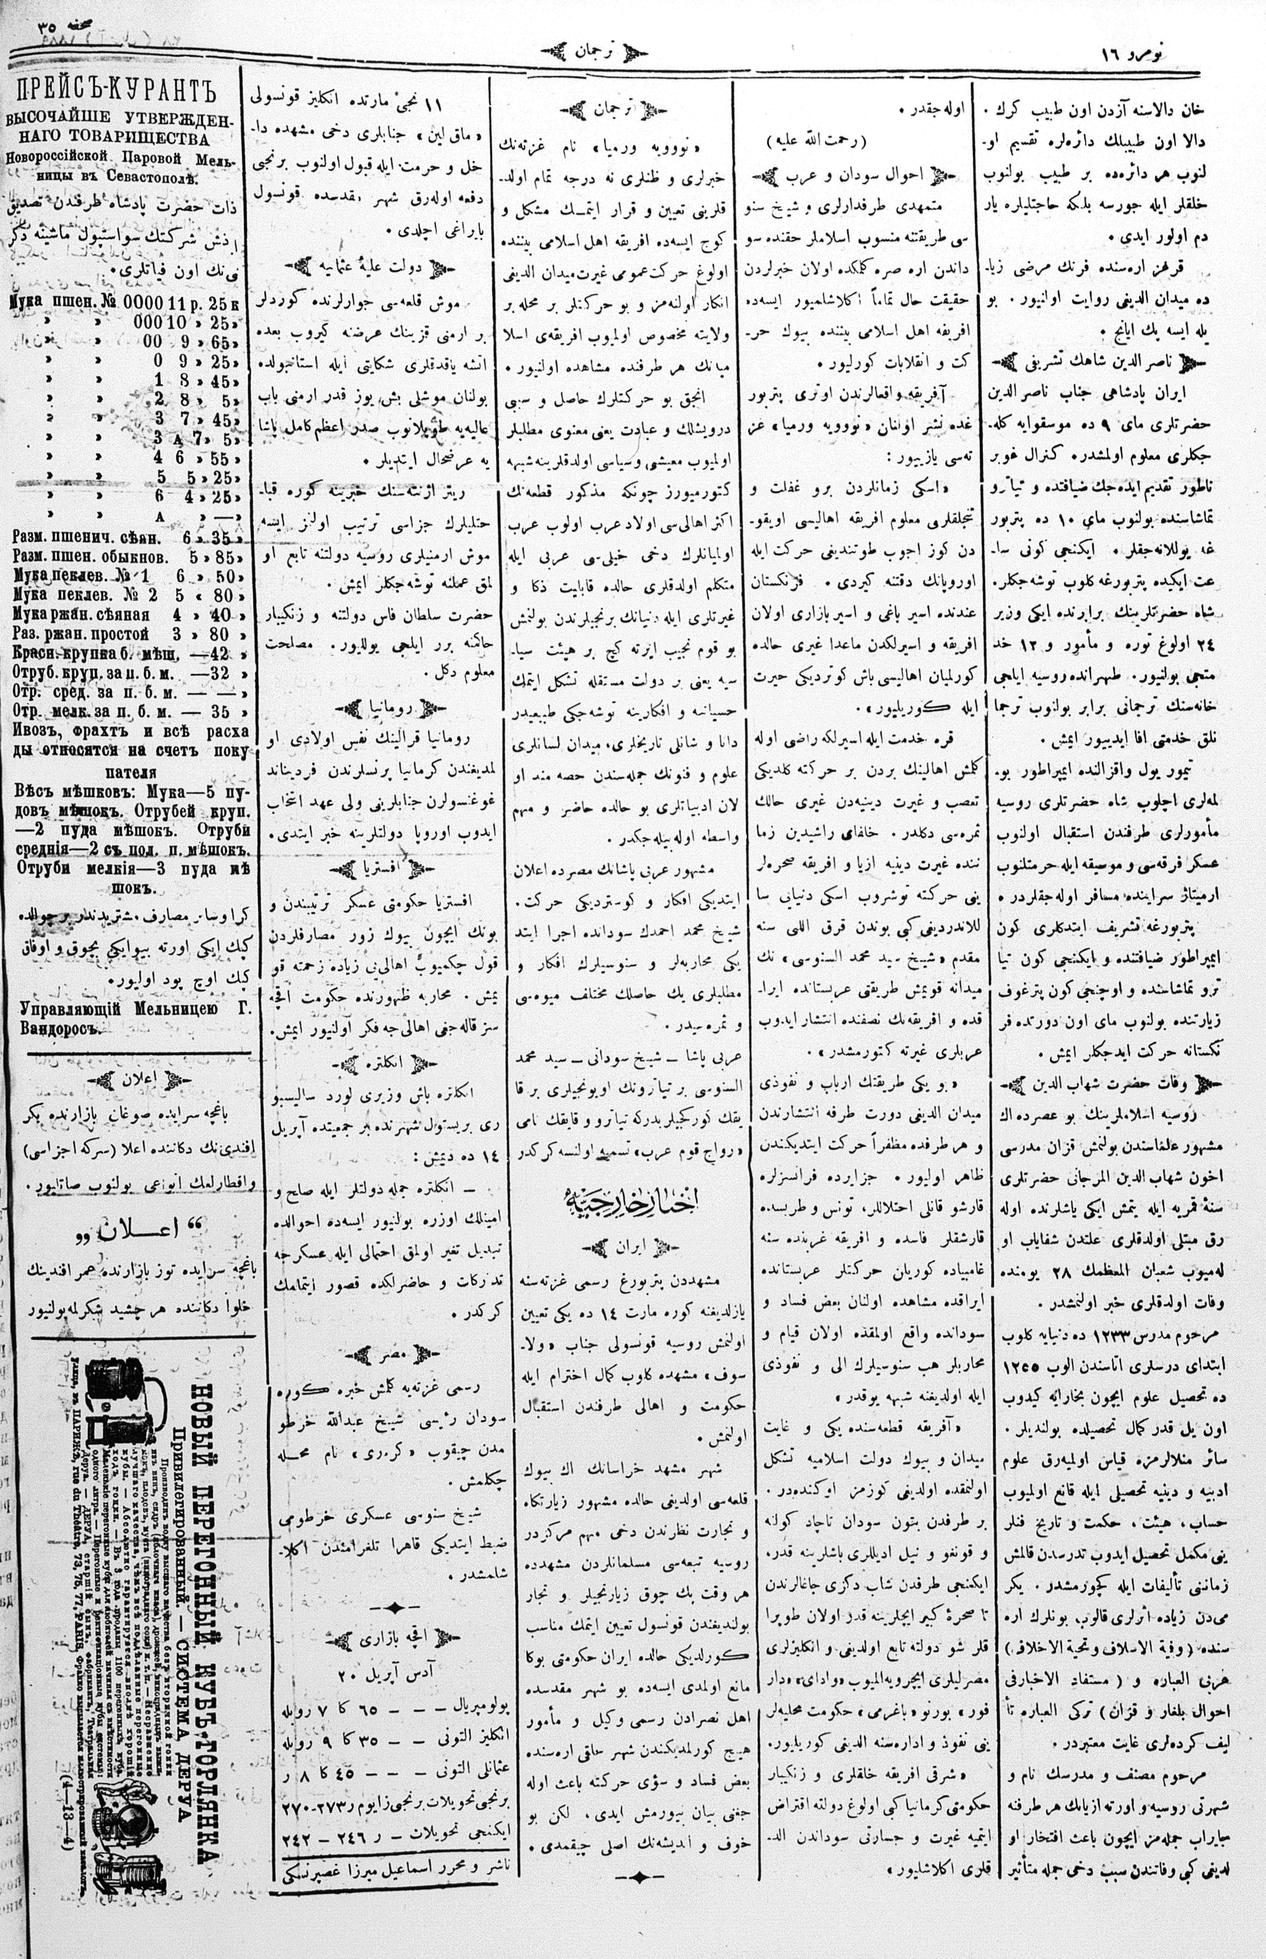 نومرو ١٦
ترجمان
صحفه ٣٥
خان دالاسنه آزدن اون طبيب كرك .
دالا اون طبيبلك دائره‌لره تقسيم او-
لنوب هر دائره‌ده بر طبيب بولنوب
خلقلر ايله جورسه بلكه حاجتليلره يار
دم اولور ايدى .
قرلهز اره‌سنده فرنك مرضى زيا-
ده ميدان الديغى روايت اولنيور . بو
يله ايسه يك ايانج .
ناصر الدين شاهك تشريفى
ايران پادشاهى جناب ناصر الدين
حضرتلرى ماى ٩ ده موسقوايه كله-
جكلرى معلوم اولمشدر . كنرال غوبر
ناطور تقديم ايده‌جك ضيافتده و تياترو
تماشاسنده بولنوب ماى ١٠ ده پتربور
غه يوللانه‌جقلر . ايكنجى كونى سا-
عت ايكيده پتربورغه كلوب توشه‌جكلر .
شاه حضرتلرينك برابرنده ايكى وزير
٢٤ اولوغ توره و مأمور و ١٣ خد
متجى بولنيور . طهرانده روسيه ايلچى
خانه‌سنك ترجمانى برابر بولنوب ترجما
نلق خدمتى افا ايدييور ايمش .
تيمور يول واقزالنده ايمپراطور بو-
لمه‌لرى اچلوب شاه حضرتلرى روسيه
مأمورلرى طرفندن استقبال اولنوب
عسكر فرقه‌سى و موسيقه ايله حرمتلنوب
ارميتاژ سراينده مسافر اوله‌جقلردر .
پتربورغه تشريف ايتدكلرى كون
ايمپراطور ضيافتنده و ايكنجى كون تيا
ترو تماشاسنده و اوچنجى كون پترغوف
زيارتنده بولنوب ماى اون دورتده فر
نكستانه حركت ايدجكلر ايمش .
وفات حضرت شهاب الدين
روسيه اسلاملرينك بو عصرده اك
مشهور علماسندن بولنمش قزان مدرسى
اخون شهاب الدين المرجانى حضرتلرى
سنهٔ قمريه ايله يتمش ايكى ياشلرنده اوله
رق مبتلى اولدقلرى علتدن شفاياب او
له‌ميوب شعبان المعظمك ٢٨ يومنده
وفات اولدقلرى خبر اولنمشدر .
مرحوم مدرس ١٢٣٣ ده دنيايه كلوب
ابتداى درسلرى اتاسندن الوب ١٢٥٥
ده تحصيل علوم ايچون بخارايه كيدوب
اون يل قدر كمال تحصيلده بولنديلر .
سائر منلالرمزه قياس اولميه‌رق علوم
ادبيه و دينيه تحصيلى ايله قانع اولميوب
حساب ، هيئت ، حكمت و تاريخ فنلر
ينى مكمل تحصيل ايدوب تدرسدن قالمش
زماننى تأليفات ايله كچورمشدر . يكر
مى‌دن زياده اثرلرى قالوب بونلرك اره
سنده (وفية الاسلاف وتحية الاخلاف)
عربى العباره و (مستفاد الاخبارفى
احوال بلغار و قزان) تركى العباره تأ
ليف كرده‌لرى غايت معتبردر .
مرحوم مصنف و مدرسك نام و
شهرتى روسيه و اورته ازيانك هر طرفنه
سايراب جمله‌مز ايچون باعث افتخار او
لديغى كبى وفاتندن سبب دخى جمله متأثير
اوله جقدر .
(رحمت الله عليه)
احوال سودان و عرب
متمهدى طرفدارلرى و شيخ سنو
سى طريقتنه منسوب اسلاملر حقنده سو
داندن اره صره كلمكده اولان خبرلردن
حقيقت حال تماماً اكلاشلميور ايسه‌ده
افريقه اهل اسلامى بيننده بيوك حر-
كت و انقلابات كورليور .
آفريقه واقعالرندن اوترى پتربور
غده نشر اولنان «نووويه ورميا» غز
ته‌سى يازييور :
«اسكى زمانلردن برو غفلت و
تنجلقلرى معلوم افريقه اهاليسى اويقو-
دن كوز اچوب طوتنديغى حركت ايله
اوروپانك دقتنه كيردى . فرنكستان
عندنده اسير ياغى و اسير بازارى اولان
افريقه و اسيرلكدن ماعدا غيرى حالده
كورلميان اهاليسى باش كوتردیكى حيرت
ايله كوريليور» .
قره خدمت ايله اسيرلكه راضى اوله
كلمش اهالينك بردن بر حركته كلديكى
تعصب و غيرت دينيه‌دن غيرى حالك
ثمره‌سى دكلدر . خلفاى راشيدين زما
ننده غيرت دينيه ازيا و افريقه صحره‌لر
ينى حركته توشروب اسكى دنيايى سا
للاندرديغى كبى بوندن قرق اللى سنه
مقدم «شيخ سيد محمد السنوسى» نك
ميدانه قويمش طريقتى عربستانده ايرا-
قده و افريقه‌نك نصفنده انتشار ايدوب
عربلرى غيرته كتورمشدر» .
«بو يكى طريقتك ارباب و نفوذى
ميدان الديغى دورت طرفه انتشارندن
و هر طرفده مظفراً حركت ايتديكندن
ظاهر اوليور . جزايرده فرانسزلره
قارشو قانلى اختلاللر ، تونس و طربسده
قارشقلر فاسده و افريقه غربنده سنه
غامبياده كوريان حركتلر عربستانده
ايراقده مشاهده اولنان بعض فساد و
سودانده واقع اولمقده اولان قيام و
محاربلر هب سنوسيلرك الى و نفوذى
ايله اولديغنه شبهه يوقدر»
«آفريقه قطعه‌سنده يكى و غايت
ميدان و بيوك دولت اسلاميه تشكل
اولنمقده اولديغى كوزمز اوكنده‌در .
بر طرفدن بتون سودان تاچاد كولنه
و قونغو و نيل اديللرى باشلرينه قدر .
ايكنجى طرفدن شاب دكزى جاغالرندن
تا صحرهٔ كبير ايچلرينه قدر اولان طوپرا
قلر شو دولته تابع اولديغى و انكليزلرى
مصرليلرى ايچرويه الميوب «واداى» «دار
فور» بورنو «باغرمى» حكومت محليه‌لر
ينى نفوذ و اداره‌سنه الديغى كوريليور .
«شرقى افريقه خلقلرى و زنكيبار
حكومتى كرمانيا كبى اولوغ دولته اقتراض
ايتميه غيرت و جسارتى سوداندن الد-
قلرى اكلاشليور»
ترجمان
«نووويه ورميا» نام غزته‌نك
خبرلرى و ظنلرى نه درجه تمام اولد-
قلرينى تعيين و قرار ايتمسك مشكل و
كوج ايسه‌ده افريقه اهل اسلامى بيننده
اولوغ حركت عمومى غيرت ميدان الديغى
انكار اولنه‌مز و بو حركتلر بر محله بر
ولايته مخصوص اولميوب افريقه‌ى اسلا
ميانك هر طرفنده مشاهده اولنيور .
انجق بو حركتلرك حاصل و سببى
درويشلك و عبادت يعنى معنوى مطلبلر
اولميوب معيشى و سياسى اولدقلرينه شبهه
كتورميورز چونكه مذكور قطعه‌نك
اكثر اهالى‌سى اولاد عرب اولوب عرب
اوليانلرك دخى خيلى‌سى عربى ايله
متكلم اولدقلرى حالده قابليت ذكا و
غيرتلرى ايله دنيانك برنجيلرندن بولنمش
بو قوم نجيب ايرته كچ بر هيئت سيا-
سيه يعنى بر دولت مستقله تشكل ايتمك
حسياسه و افكارينه توشه‌جكى طبيعيدر
دانا و شانلى تاريخلرى ، ميدان لسانلرى
علوم و فنونك جمله‌سندن حصه مند او
لان ادبياتلرى بو حالده حاضر و مهم
واسطه اوله بيله جكدر .
مشهور عربى پاشانك مصرده اعلان
ايتديكى افكار و كوسترديكى حركت .
شيخ محمد احمدك سودانده اجرا ايتد
يكى محاربه‌لر و سنوسيلرك افكار و
مطلبلرى يك حاصلك مختلف ميوه‌سى
و ثمره سيدر .
عربى پاشا – شيخ سودانى – سيد محمد
السنوسى بر تياترونك اويونجيلرى بر قا
يقك كوركجيلر يدركه تياترو و قايقك نامى
«رواج قوم عرب» تسميه اولنسه كركدر
اخبار خارجيه
ايران
مشهددن پتربورغ رسمى غزته‌سنه
يازلديغنه كوره مارت ١٤ ده يكى تعيين
اولنمش روسيه قونسولى جناب «ولا-
سوف» مشهده كلوب كمال احترام ايله
حكومت و اهالى طرفندن استقبال
اولنمش .
شهر مشهد خراسانك اك بيوك
قلعه‌سى اولديغى حالده مشهور زيارتكاه
و تجارت نظرندن دخى مهم مركزدر
روسيه تبعه‌سى مسلمانلردن مشهدده
هر وقت يك چوق زيارتجيلر و تجار
بولنديغندن قونسول تعيين ايتمك مناسب
كورلديكى حالده ايران حكومتى بوكا
مانع اولمدى ايسه‌ده بو شهر مقدسده
اهل نصرادن رسمى وكيل و مأمور
هيچ كورلمديكندن شهر خلقى اره‌سنده
بعض فساد و سؤى حركته باعث اوله
جغنى بيان بيورمش ايدى . لكن بو
خوف و انديشه‌نك اصلى چيقمدى .
١١ نجىء مارتده انكليز قونسولى
«ماق لين» جنابلرى دخى مشهده دا-
خل و حرمت ايله قبول اولنوب برنجى
دفعه اوله‌رق شهر مقدسده قونسول
بايراغى اچلدى .
دولت عليهٔ عثمانيه
موش قلعه‌سى جوارلرنده كوردلر
بر ارمنى قزينك عرضنه كيروب بعده
اتشه ياقدقلرى شكايتى ايله استانبولده
بولنان موشلى بش يوز قدر ارمنى باب
عاليه‌يه طوپلانوب صدر اعظم كامل پاشا
يه عرضحال ايتديلر .
ريتر اژنته‌سنك خبرينه كوره قبا-
حتليلرك جزاسى ترتيب اولنز ايسه
موش ارمنيلرى روسيه دولتنه تابع او
لمق عملنه توشه‌جكلر ايمش .
حضرت سلطان فاس دولتنه و زنكيبار
حاكمنه برر ايلچى يوللايور . مصلحت
معلوم دكل .
رومانيا
رومانيا قرالينك نفس اولادى او
لمديغندن كرمانيا پرنسلرندن فرديناند
غوغنسولرن جنابلرينى ولى عهد انتخاب
ايدوب اوروپا دولتلرينه خبر ايتدى .
افستريا
افستريا حكومتى عسكر ترتيبندن و
بونك ايچون بيوك زور مصارفلردن
قول چكميوب اهالى‌يى زياده زحمته قو
يمش . محاربه ظهورنده حكومت اقچه
سز قاله‌جغى اهالى‌جه فكر اولنيور ايمش .
انكلتره
انكلتره باش وزيرى لورد ساليسبو
رى بريستول شهرنده بر جمعيتده آپريل
١٤ ده ديمش :
– انكلتره جمله دولتلر ايله صلح و
امينلك اوزره بولنيور ايسه‌ده احوالده
تبديل تغير اولمق احتمالى ايله عسكرجه
تداركات و حاضرلكده قصور ايتمامك
كركدر .
مصر
رسمى غزته‌يه كلمش خبره كوره
سودان رئيسى شيخ عبدالله خرطو
مدن چيقوب «كررى» نام محله
چكلمش .
شيخ سنوسى عسكرى خرطومى
ضبط ايتديكى قاهرا تلغرامندن اكلا-
شلمشدر .
اقچه بازارى
آدس آپريل ٢٠
پولومپريال – – ٦٥ ٧ كا روبله
انكليز التونى – – ٣٥ ٩ كا روبله
عثمانلى التونى – – – ٤٥ ٨ كا ر
برنجى تحويلات برنجى زايوم ر ٢٧٣–٢٧٠
ايكنجى تحويلات – ر ٢٤٦ – ٢٤٢
ناشر و محرر اسماعيل ميرزا غصپرنسكى
ПРЕЙСЪ-КУРАНТЪ
ВЫСОЧАЙШЕ УТВЕРЖДЕН-
НАГО ТОВАРИЩЕСТВА
Новороссійской Паровой Мель-
ницы въ Севастополѣ.
ذات حضرت پادشاه طرفندن تصديق
اولنمش شركتك سواستپول ماشينه دكر
منى‌نك اون فياتلرى .
Мука пшен. № 0000 11 р. 25 к
» » 000 10 » 25 »
» » 00 9 » 65 »
» » 0 9 » 25 »
» » 1 8 » 45 »
» » 2 8 » 5 »
» » 3 7 » 45 »
» » 3 А 7 » 5 »
» » 4 6 » 55 »
» » 5 5 » 25 »
» » 6 4 » 25 »
» » А » — »
Разм. пшенич. сѣян. 6 » 35 »
Разм. пшен. обыкнов. 5 » 85 »
Мука пеклев. № 1 6 » 50 »
Мука пеклев. № 2 5 « 80 »
Мука ржан. сѣяная 4 » 40 »
Раз. ржан. простой 3 » 80 »
Красн. крупка б. мѣш. — 42 »
Отруб. круп. за п. б. м. — 32 »
Отр. сред. за п. б. м. — — »
Отр. мелк. за п. б. м. — 35 »
Ивозъ, фрахтъ и всѣ расха
ды относятся на счетъ поку
пателя
Вѣсъ мѣшковъ: Мука—5 пу-
довъ мѣшокъ. Отрубей круп.
—2 пуда мѣшокъ. Отруби
среднія—2 съ пол. п. мѣшокъ.
Отруби мелкія—3 пуда мѣ
шокъ.
كرا و سائر مصارف مشتريدندر بر چوالده
كپك ايكى اورته بيوايكى بچوق و اوفاق
كپك اوچ پود اوليور .
Управляющій Мельницею Г.
Вандоросъ.
اعلان
باغچه سرايده صوغان بازارنده بكر
افندى‌نك دكاننده اعلا (سركه اجزاسى)
و اقطارلمك انواعى بولنوب صاتليور .
„ اعــلان “
باغچه سرايده توز بازارنده عمر افندينك
حلوا دكاننده هر چشيد شكرلمه بولنيور
НОВЫЙ ПЕРЕГОННЫЙ КУБЪ-ГОРЛЯНКА
Привилегированный. — СИСТЕМА ДЕРУА
ПАРИЖѢ, rue du Théâtre, 73, 75, 77, PARIS
(4—13—4)